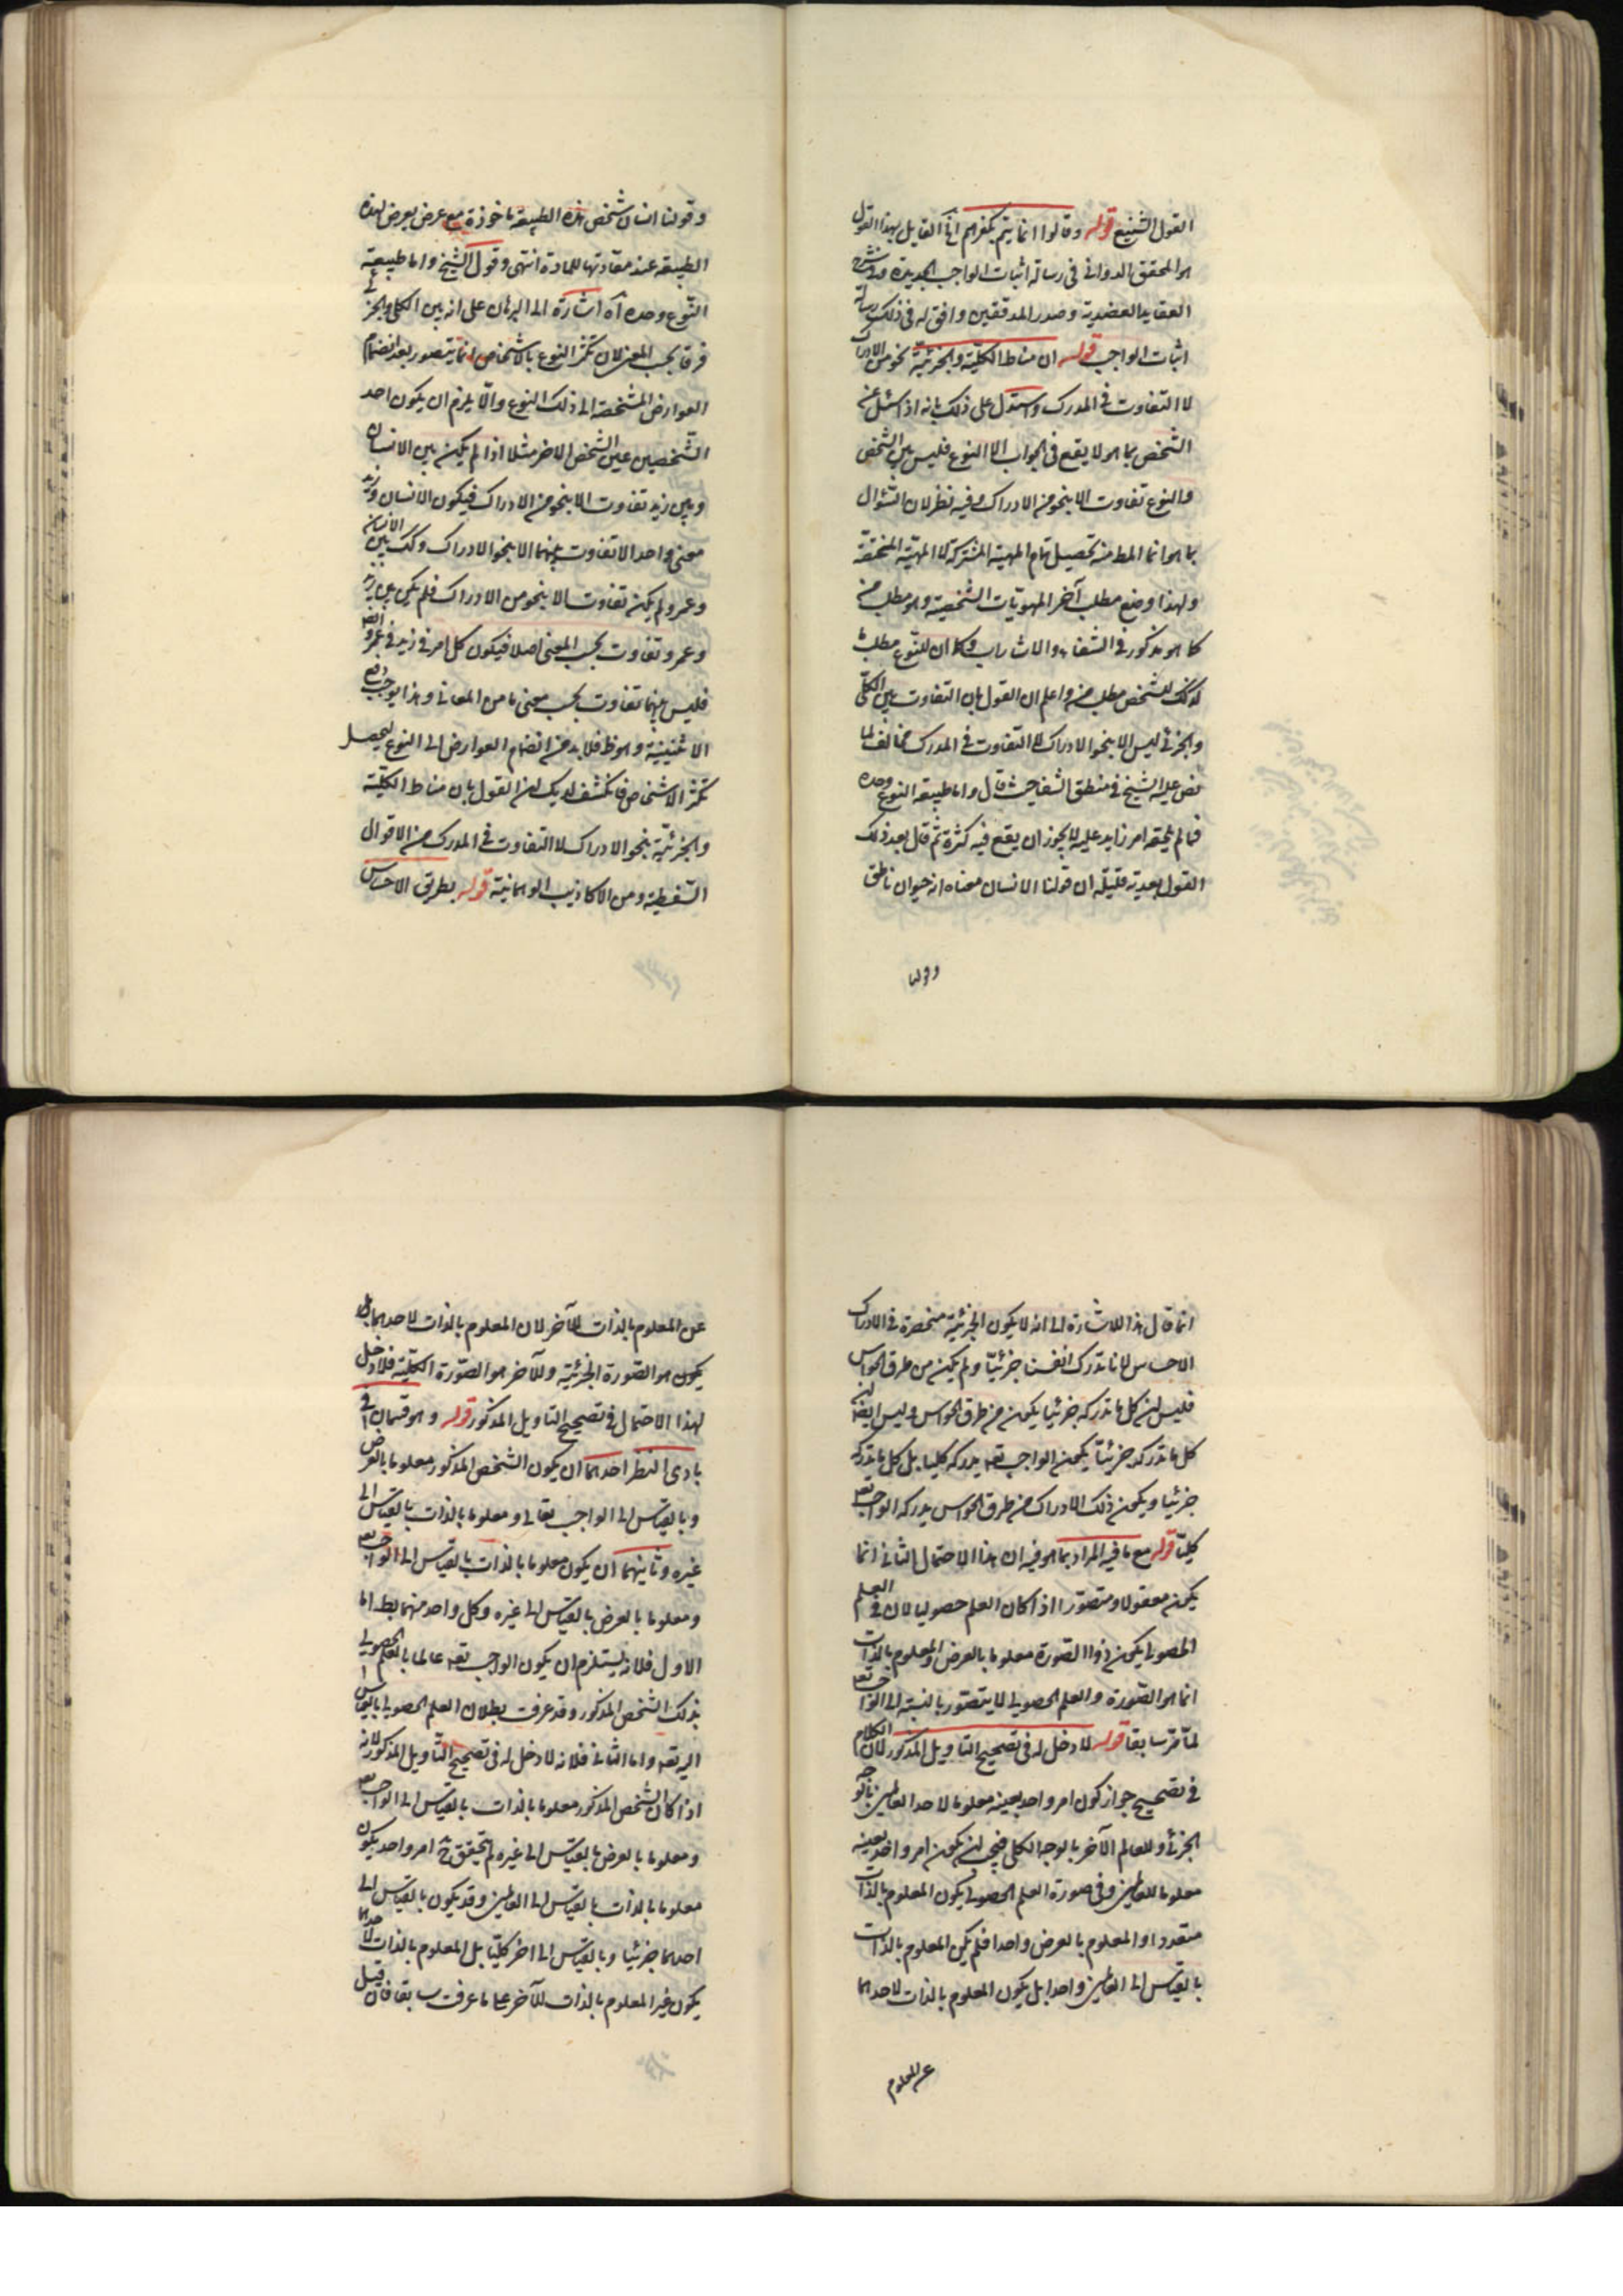 القول الشنيع قوله وقالوا انما يتم تكفرهم آه القايل بهذا القول
هو المحقق الدواني في رسالة اثبات الواجب الجديدة وفي شرح
العقايد العضدية وصدر المدققين وافق له في ذلك رسالة
اثبات الواجب قوله ان مناط الكلية والجزئية نحو من الادراك
لا التفاوت في المدرك واستدل على ذلك بانه اذا سئل عن
الشخص بما هو لا يقع في الجواب الا النوع فليس بين الشخص
والنوع تفاوت الا بنحو من الادراك وفيه نظر لان السؤال
بما هو انما المط منه تحصيل تمام المهية المشتركة لا المهية المختصة
ولهذا وضع مطلب آخر للهويات الشخصية وهو مطلب من
كما هو مذكور في الشفاء والاشارات وكما ان للنوع مطلب ما
كذلك للشخص مطلب من واعلم ان القول بان التفاوت بين الكلي
والجزئي ليس الا بنحو الادراك لا التفاوت في المدرك مخالف لما
نص عليه الشيخ في منطق الشفا حيث قال واما طبيعة النوع وحده
فما لم يلحقه امر زايد عليه لا يجوز ان يقع فيه كثرة ثم قال بعد ذلك
القول بعدية قليلة ان قولنا الانسان معناه انه حيوان ناطق
وقولنا
وقولنا انسان شخص هذه الطبيعة ماخوذة مع عرض يعرض لهذه
الطبيعة عند مقارنتها للمادة انتهى وقول الشيخ واما طبيعة
النوع وحده آه اشارة الى البرهان على انه بين الكلي والجزئي
فرقا بحسب المعنى لان تكثر النوع بالاشخاص انما يتصور بعد انضمام
العوارض المشخصة الى ذلك النوع والا يلزم ان يكون احد
الشخصين عين الشخص الاخر مثلا اذا لم يكن بين الانسان
وبين زيد تفاوت الا بنحو من الادراك فيكون الانسان وزيد
معنى واحد الا تفاوت بينهما الا بنحو الادراك وكك بين الانسان
وعمرو لم يكن تفاوت الا بنحو من الادراك فلم يكن بين زيد
وعمرو تفاوت بحسب المعنى اصلا فيكون كل امر في زيد في عمرو ايضا
فليس بينهما تفاوت بحسب معنى ما من المعاني وهذا يوجب رفع
الاثنينية وهو ظ فلا بد من انضمام العوارض الى النوع ليحصل
تكثر الاشخاص فانكشف لديك ان القول بان مناط الكلية
والجزئية بنحو الادراك لا التفاوت في المدرك من الاقوال
السفسطية ومن الاكاذيب الوهمانية قوله بطريق الاحساس
انما قال هذا للاشارة الى انه لا يكون الجزئية منحصرة في الادراك
الاحساس لانا ندرك انفسنا جزئيا ولم يكن من طرق الحواس
فليس ان كل ما ندركه جزئيا يكون من طرق الحواس وليس ايضا ان
كل ما ندركه جزئيا يكون الواجب تعه يدركه كليا بل كل ما ندركه
جزئيا ويكون ذلك الادراك من طرق الحواس يدركه الواجب تعه
كليا قوله مع ما فيه المراد بما هو فيه ان هذا الاحتمال الثاني انما
يكون معقولا ومتصورا اذا كان العلم حصوليا لان في العلم
الحصولي يكون ذو الصورة معلوما بالعرض والمعلوم بالذات
انما هو الصورة والعلم الحصولي لا يتصور بالنسبة الى الواجب تعه
لما مر سابقا قوله لا دخل له في تصحيح التاويل المذكور لان الكلام
في تصحيح جواز كون امر واحد بعينه معلوما لاحد العالمين بالوجه
الجزئي وللعالم الآخر بالوجه الكلي فيجب ان يكون امر واحد بعينه
معلوما للعالمين وفي صورة العلم الحصولي يكون المعلوم بالذات
متعددا والمعلوم بالعرض واحدا فلم يكن المعلوم بالذات
بالقياس الى العالمين واحدا بل يكون المعلوم بالذات لاحدهما
عن المعلوم
عن المعلوم بالذات للآخر لان المعلوم بالذات لاحدهما
يكون هو الصورة الجزئية وللآخر هو الصورة الكلية فلا دخل
لهذا الاحتمال في تصحيح التاويل المذكور قوله وهو قسمان في
بادى النظر احدهما ان يكون الشخص المذكور معلوما بالعرض
وبالقياس الى الواجب تعالى ومعلوما بالذات بالقياس الى
غيره وثانيهما ان يكون معلوما بالذات بالقياس الى الواجب تعه
ومعلوما بالعرض بالقياس الى غيره وكل واحد منهما بط اما
الاول فلانه يستلزم ان يكون الواجب تعه عالما بالعلم الحصولي
بذلك الشخص المذكور وقد عرفت بطلان العلم الحصولي بالقياس
اليه تعه واما الثاني فلانه لا دخل له في تصحيح التاويل المذكور لانه
اذا كان الشخص المذكور معلوما بالذات بالقياس الى الواجب تعه
ومعلوما بالعرض بالقياس الى غيره لم يتحقق ح امر واحد يكون
معلوما بالذات بالقياس الى العالمين وقد يكون بالقياس الى
احدهما جزئيا وبالقياس الى اخر كليا بل المعلوم بالذات لاحدهما
يكون غير المعلوم بالذات للآخر على ما عرفت سابقا فان قيل